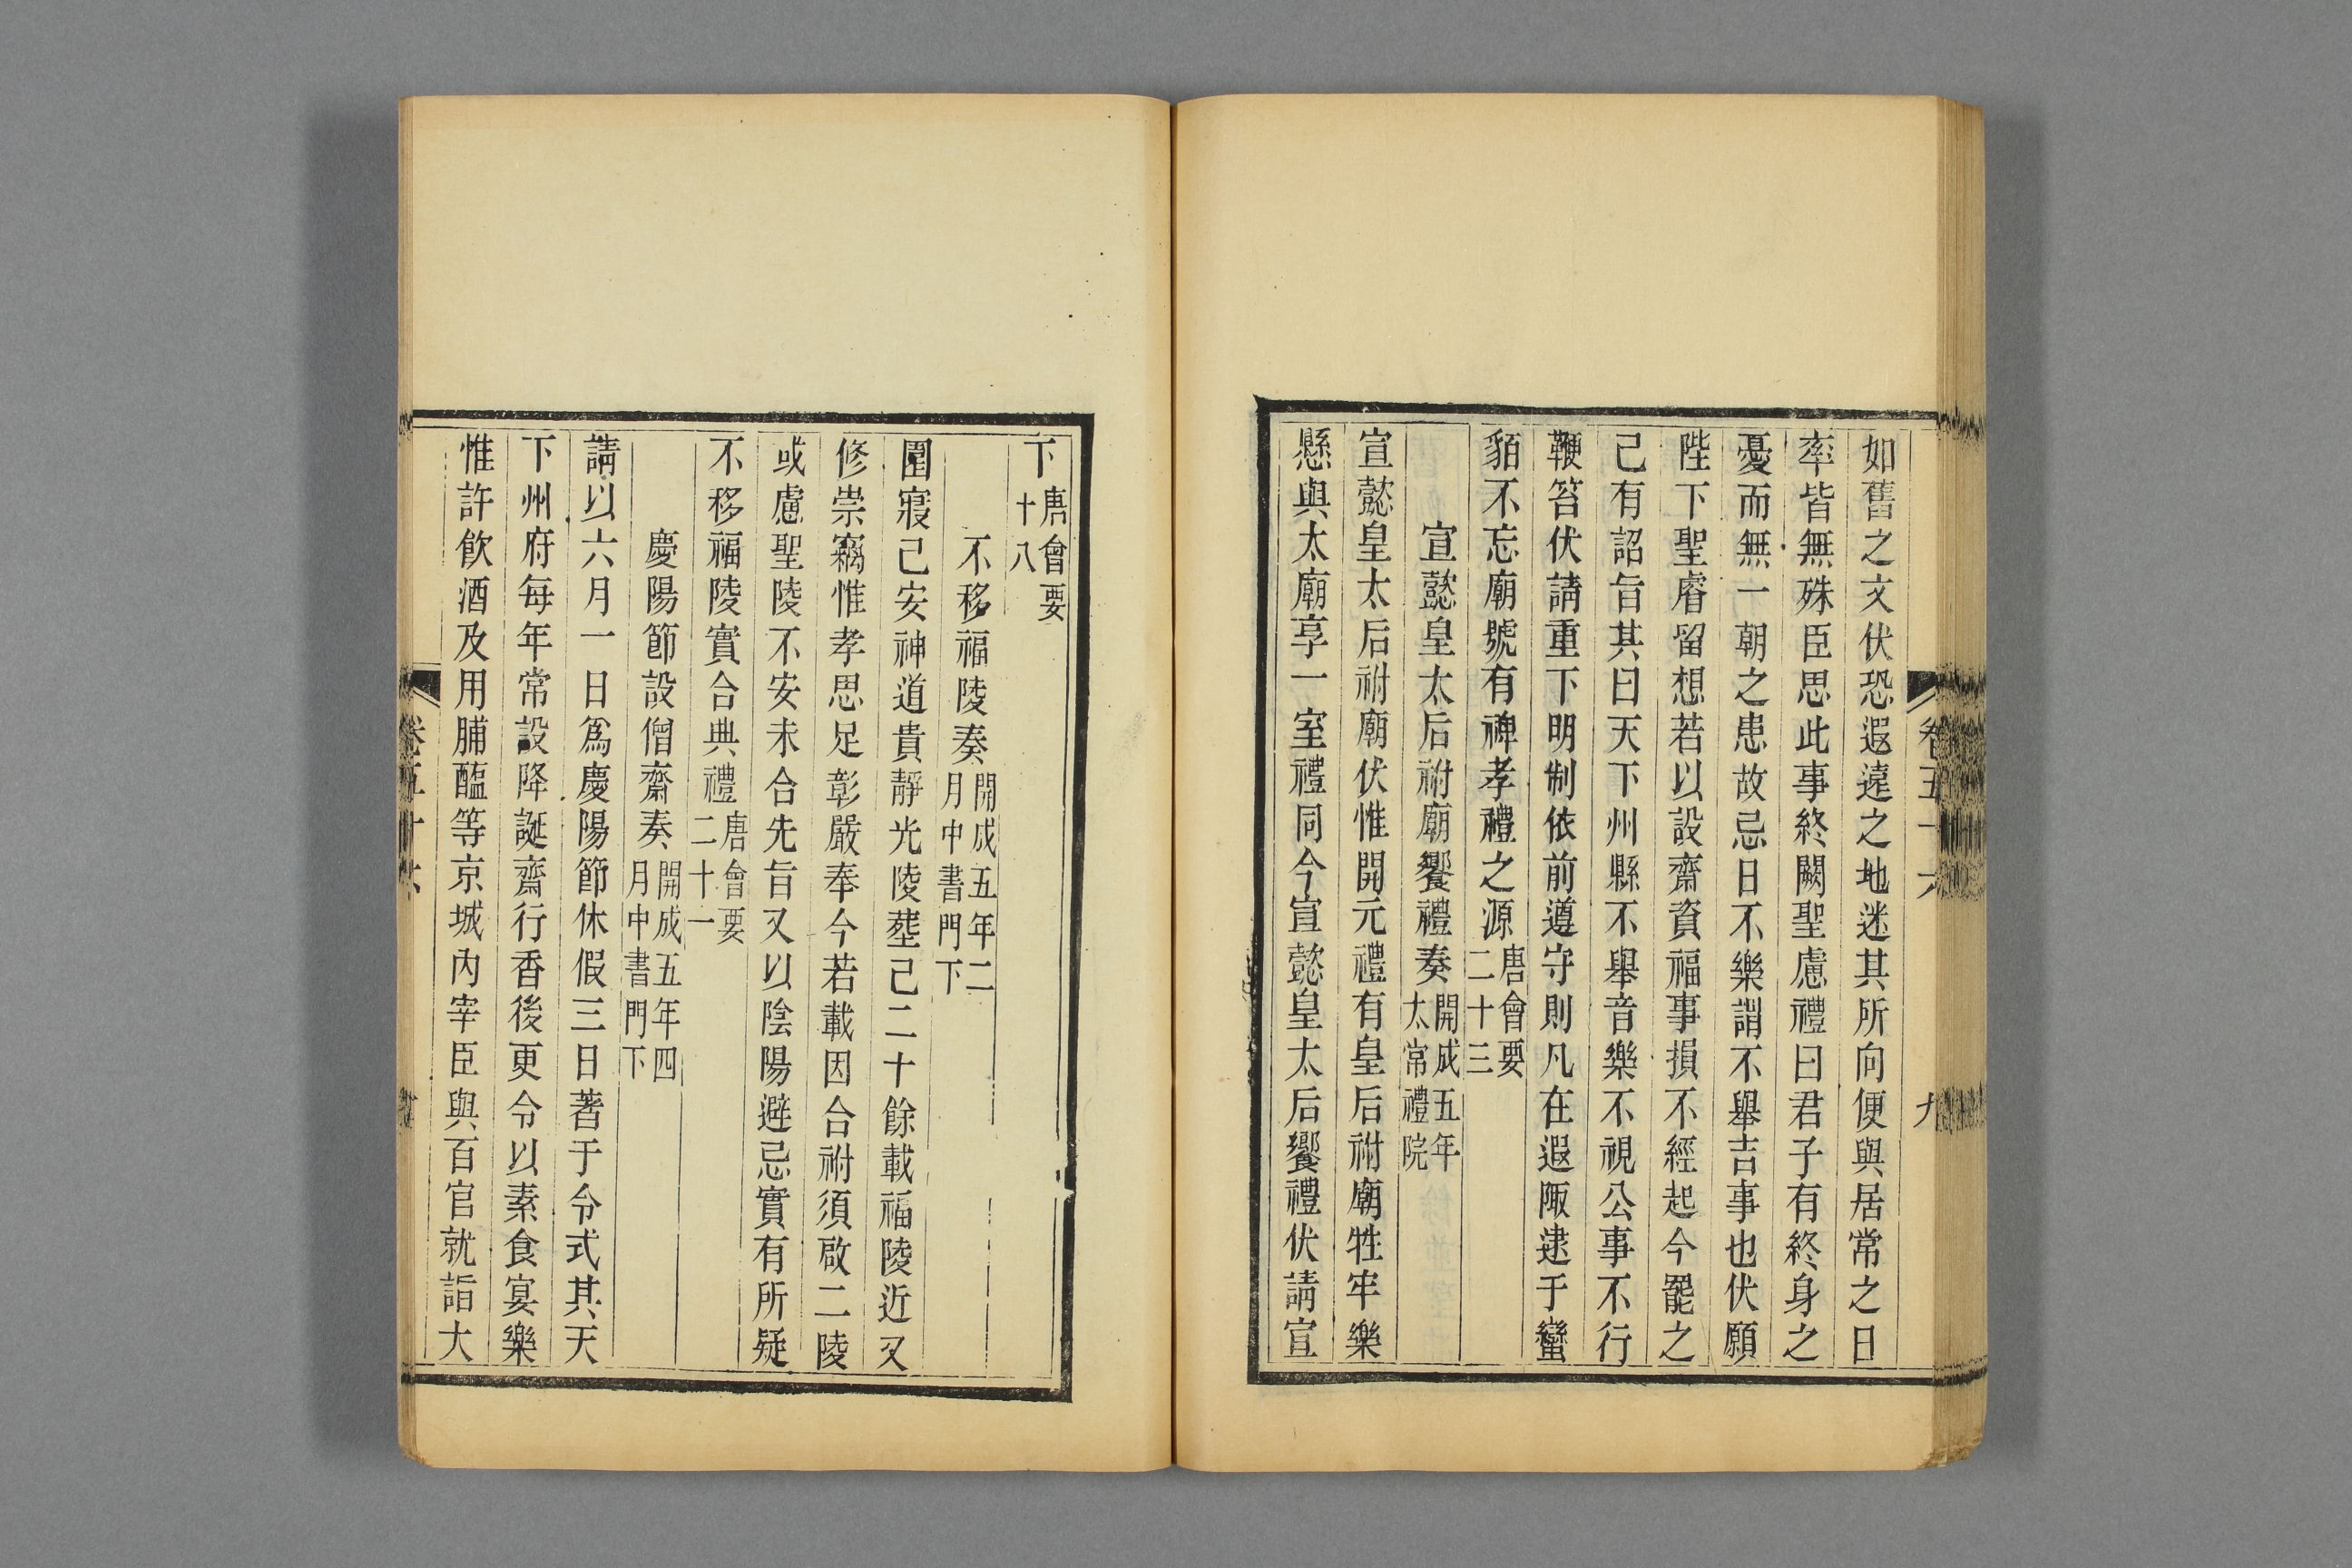 卷五十六
九
如舊之文伏恐遐遠之地迷其所向便與居常之日
率皆無殊臣思此事終闕聖慮禮曰君子有終身之
憂而無一朝之患故忌日不樂謂不舉吉事也伏願
陛下聖睿留想若以設齋資福事損不經起今罷之
已有詔旨其曰天下州縣不舉音樂不視公事不行
鞭笞伏請重下明制依前遵守則凡在遐陬逮于蠻
貊不忘廟號有裨孝禮之源唐會要二十三
宣懿皇太后祔廟饗禮奏開成五年太常禮院
宣懿皇太后祔廟伏惟開元禮有皇后祔廟牲牢樂
懸與太廟享一室禮同今宣懿皇太后饗禮伏請宣
下唐會要十八
不移福陵奏開成五年二月中書門下
園寢已安神道貴靜光陵塟已二十餘載福陵近又
修崇竊惟孝思足彰嚴奉今若載因合祔須啟二陵
或慮聖陵不安未合先旨又以陰陽避忌實有所疑
不移福陵實合典禮唐會要二十一
慶陽節設僧齋奏開成五年四月中書門下
請以六月一日爲慶陽節休假三日著于令式其天
下州府每年常設降誕齋行香後更令以素食宴樂
惟許飲酒及用脯醢等京城內宰臣與百官就詣大
卷五十六